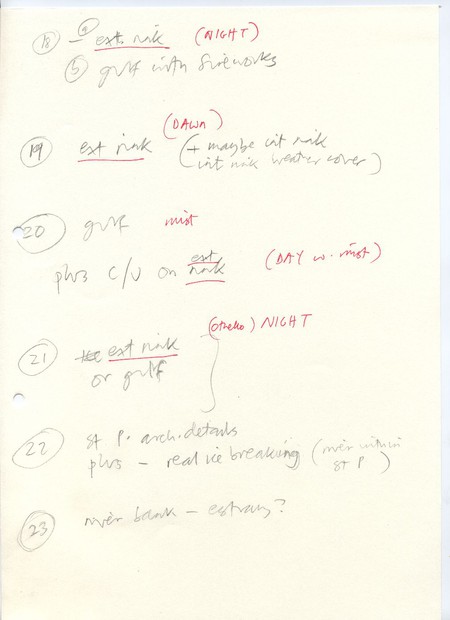 18 - (a) ext. rink (NIGHT)
(b) gulf with fireworks
(DAWN)
19 ext rink (+ maybe int rink
int rink weather cover)
20 gulf mist
ext
plus C/U on rink (DAY w. mist)
(Otello) NIGHT
21 ext rink
or gulf
22 St P. arch. details
plus - real ice breaking (river within
St P)
23 river bank - estuary?